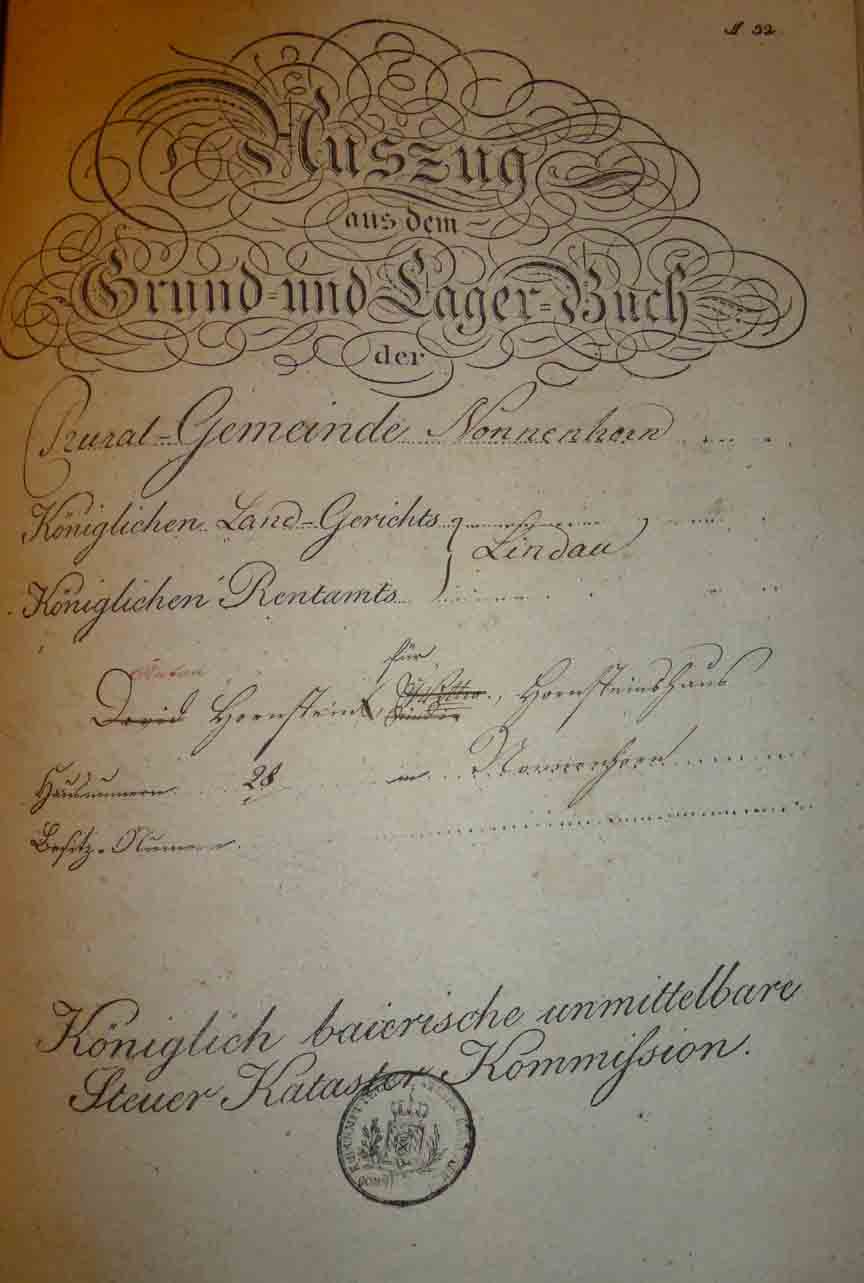 32
Auszug
aus dem
Grund- und Lager-Buch
der
Rural-Gemeinde Nonnenhorn
Königlichen Land-Gerichts
Lindau
Königlichen Rentamts
für
David Hornstein, Hornsteinshaus
Hausnummern 28 in Nonnenhorn
Besitz-Numern
Königlich baierische unmittelbare
Steuer Kataster Kommission.